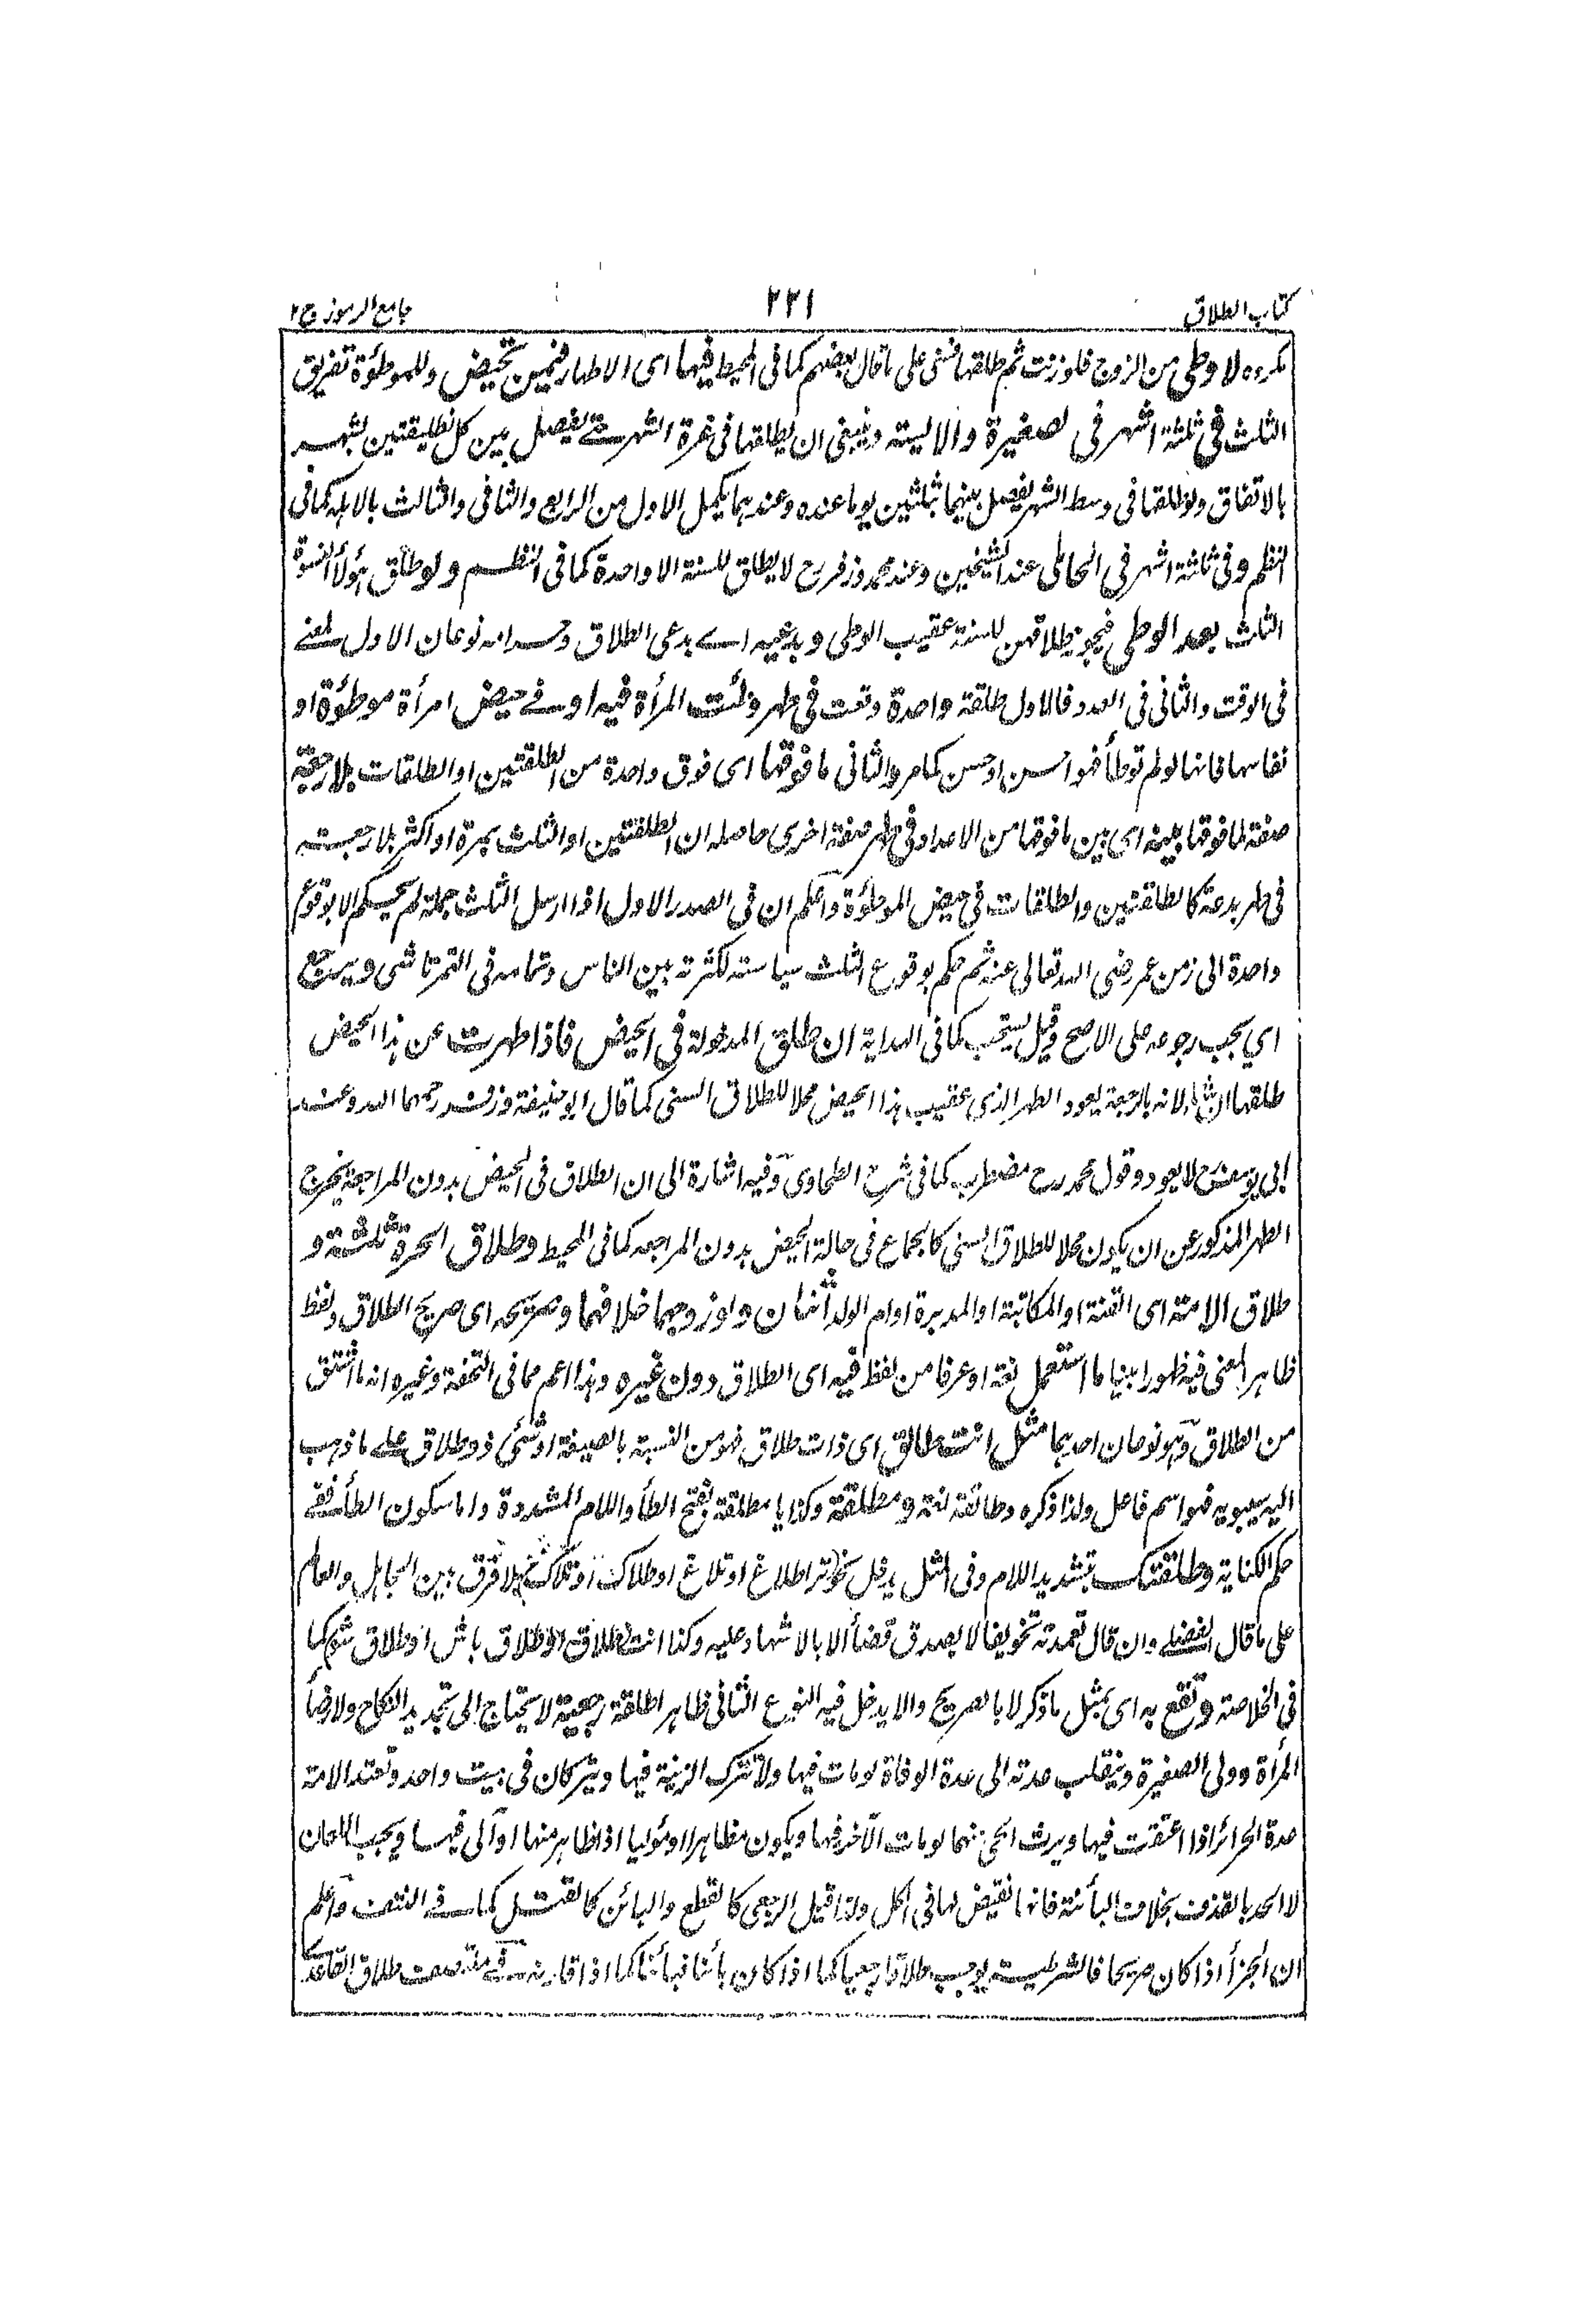 كتاب الطلاق
٢٢١
جامع الرموز ج٢
مكروه لا وطى من الزوج فلو زنت ثم طلقها فسنى على ما قال بعضهم كما فى المحيط فيها اى الاطهار فيمن تحيض وللموطؤة تفريق
الثلث فى ثلثة اشهر فى لصغيرة والالسيته وينبغى ان يطلقها فى غرة الشهر حتى يفصل بين كل تطليقتين لشهر
بالاتفاق ولو طلقها فى وسط الشهر يفصل بينهما بثلثين يوما عنده وعندهما يكمل الاول من الرابع والثانى والثالث بالاهلة كما فى
النظم وفى ثلثة اشهر فى الحامل عند الشيخين وعند محمد وزفر رح لا يطلق للسنة الا واحدة كما فى النظم ولو طلق هؤلأ النسوة
الثلث بعد الوطى فيجوز طلاقهن للسنة عقيب الوطى وبدعيه اے بدعى الطلاق وحده انه نوعان الاول بمعنے
فى الوقت والثانى فى العدد فالاول طلقة واحدة وقعت فى طهر وطئت المرأة فيه او فے حيض امرأة موطؤة او
نفاسها فانها لو لم توطأ فهو احسن او حسن كما مر والثانى ما فوقها اى فوق واحدة من الطلقتين او الطلقات بلا رجعة
صفة لما فوقها بينه اى بين ما فوقها من الاعداد فى طهر صفة اخرى حاصله ان الطلقتين او الثلث بمرة او اكثر بلا رجعت
فى طهر بدعة كالطلقتين والطلقات فى حيض الموطؤة واعلم ان فى الصدر الاول اذا ارسل الثلث جملة لم يحكم الا بوقوع
واحدة الى زمن عمر رضى الله تعالى عنه ثم حكم بوقوع الثلث سياسته لكثرته بين الناس وتمامه فى التمرتاشى ويراجع
اي يجب رجوعه على الاصح وقيل يستحب كما فى الهداية ان طلق المدخولة فى الحيض فاذا طهرت عن هذا الحيض
طلقها ان شاء لانه بالرجعة يعود الطهر الذى عقيب هذا الحيض محلا للطلاق السنى كما قال ابو حنيفة وزفر رحمهما الله وعند
ابى يوسف رح لا يعود وقول محمد رح مضطرب كما فى شرح الطحاوى وفيه اشارة الى ان الطلاق فى الحيض بدون المراجعة يخرج
الطهر المذكور عن ان يكون محلا للطلاق السنى كالجماع فى حالة الحيض بدون المراجعه كما فى المحيط وطلاق الحرة ثلثة و
طلاق الامة اى القنة او المكاتبة او المدبرة او ام الولد اثنان ولو زوجهما خلافهما وصريحه اى صريح الطلاق ولفظ
ظاهر المعنى فيه ظهورا بينا ما استعمل لغة او عرفا من لفظ فيه اى الطلاق دون غيره وهذا اعم مما فى التحفة وغيره انه ما اشتق
من الطلاق وهو نوعان احدهما مثل انت طالق اى ذات طلاق فهو من النسبة بالصيغة او شئ ذو طلاق علے ما ذهب
اليه سيبويه فهو اسم فاعل ولذا ذكره وطالقة لغة ومطلقة وكذا يا مطلقة بفتح الطأ واللام المشددة واما سكون الطأ ففے
حكم الكناية وطلقتك بتشديد اللام وفى المثل يدخل نحو ترا طلاغ او تلاغ او طلاك او تلاك بلا فرق بين الجاهل والعالم
على ما قال الفضلے وان قال تعمدته تخويفا لا يصدق قضأ الا بالاشهاد عليه وكذا انت طلاق او طلاق باش او طلاق شو كما
فى الخلاصة وتقع به اى بمثل ما ذكر لا بالصريح والا يدخل فيه النوع الثانى ظاهرا طلقة رجعية لا يحتاج الى تجديد النكاح ولا رضأ
المرأة وولى الصغيرة وينقلب عدته الى عدة الوفاة لو مات فيها ولا تترك الزينة فيها ويتركان فى بيت واحد وتعتد الامة
عدة الحرائر اذا اعتقت فيها ويرث الحى منهما لو مات الآخر فيها ويكون مظاهرا او مؤليا اذا ظاهر منها او آلى فيها ويجب اللعان
لا الحد بالقذف بخلاف البأئنة فانها نقيض لها فى الكل ولذا قيل الرجعى كالقطع والبائن كالقتل كما فے النتف واعلم
ان الجزأ اذا كان صريحا فالشرطية يوجب طلاقا رجعيا كما اذا كان بأئنا فبأئنا كما اذا قارنه طلاق القاعدى